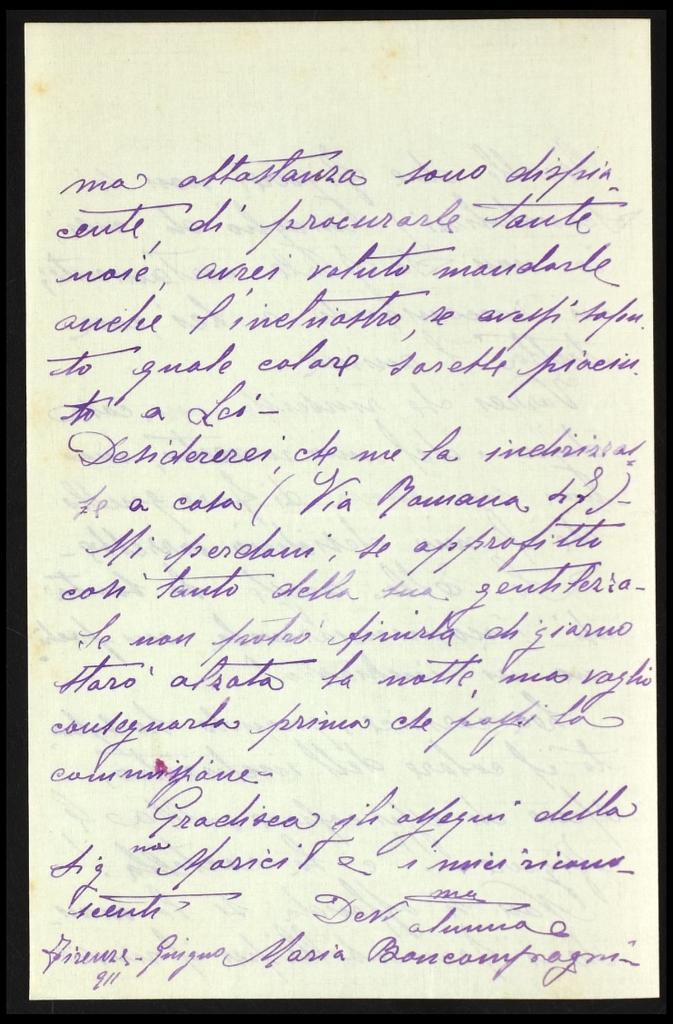 ma abbastanza sono dispia-
cente, di procurarle tante
noie, avrei voluto mandarle
anche l'inchiostro, se avessi sapu-
to quale colore sarebbe piaciu-
to a Lei -
Desidererei, che me la indirizzas-
se a casa (Via Romana
Mi perdoni, se approfitto
così tanto della sua gentilezza -
Se non potrò finirla di giorno
starò alzata la notte, ma voglio
consegnarla prima che passi la
commissione -
Gradisca gli ossegui della
Sig na Marici e i miei ricono-
scenti Dev ma alunna
Firenze - Giugno Maria Boncompagni -
911